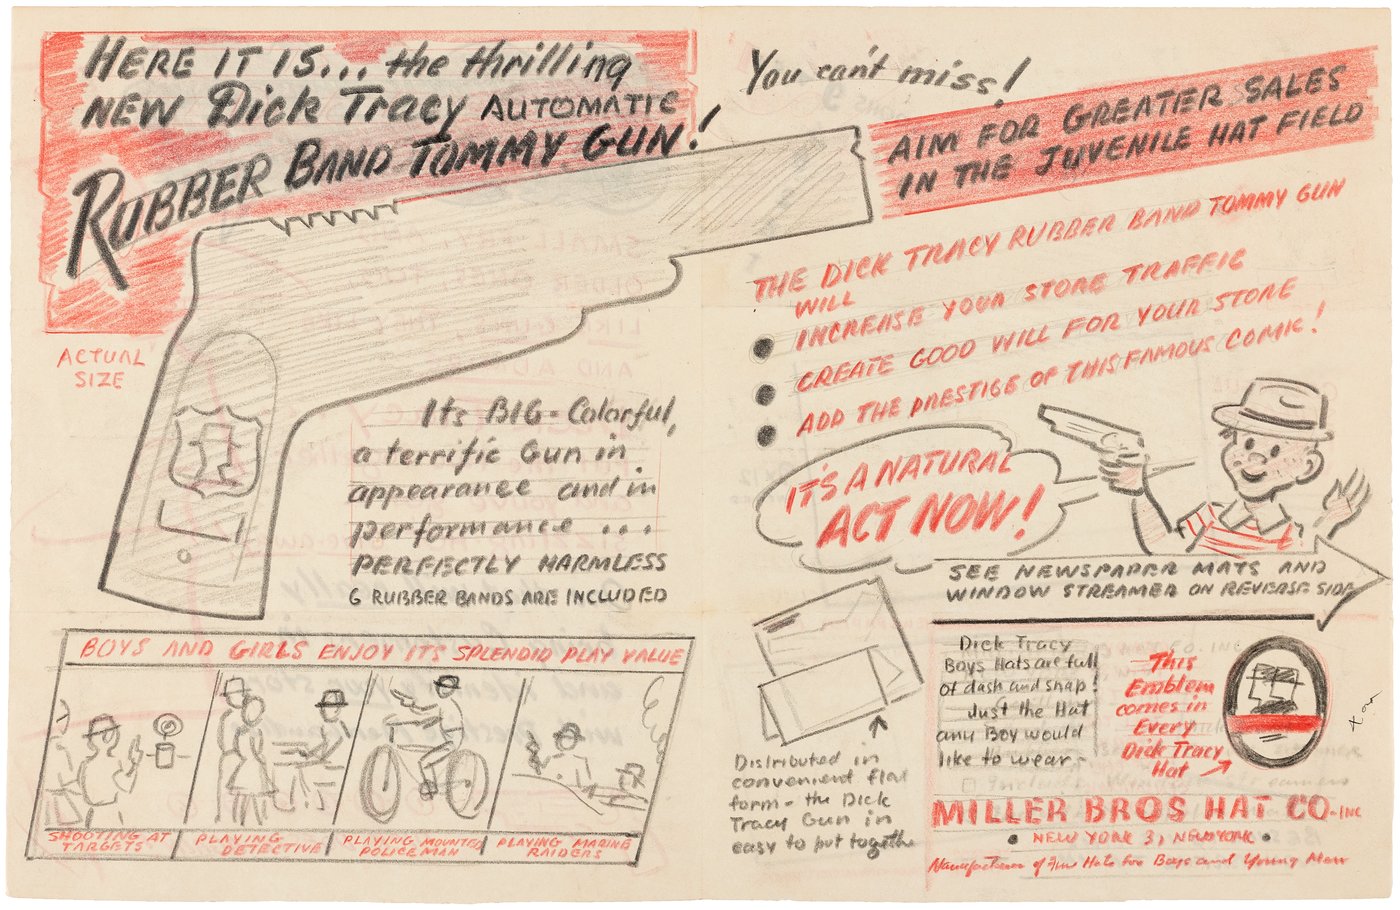 HERE IT IS... the thrilling
NEW Dick Tracy AUTOMATIC
RUBBER BAND TOMMY GUN!
ACTUAL
SIZE
Its BIG - Colorful,
a terrific Gun in
appearance and in
performance ...
PERFECTLY HARMLESS
6 RUBBER BANDS ARE INCLUDED
BOYS AND GIRLS ENJOY ITS SPLENDID PLAY VALUE
SHOOTING AT
TARGETS
PLAYING
DETECTIVE
PLAYING MOUNTED
POLICEMAN
PLAYING MARINE
RAIDERS
You can't miss!
AIM FOR GREATER SALES
IN THE JUVENILE HAT FIELD
THE DICK TRACY RUBBER BAND TOMMY GUN
WILL
• INCREASE YOUR STORE TRAFFIC
• CREATE GOOD WILL FOR YOUR STORE
• ADD THE PRESTIGE OF THIS FAMOUS COMIC!
IT'S A NATURAL
ACT NOW!
SEE NEWSPAPER MATS AND
WINDOW STREAMER ON REVERSE SIDE
Distributed in
convenient flat
form - the Dick
Tracy Gun in
easy to put together
Dick Tracy
Boys Hats are full
of dash and snap!
Just the Hat
any Boy would
like to wear -
This
Emblem
comes in
Every
Dick Tracy
Hat
MILLER BROS HAT CO. INC
• NEW YORK 3, NEW YORK •
Manufacturers of Fine Hats for Boys and Young Men